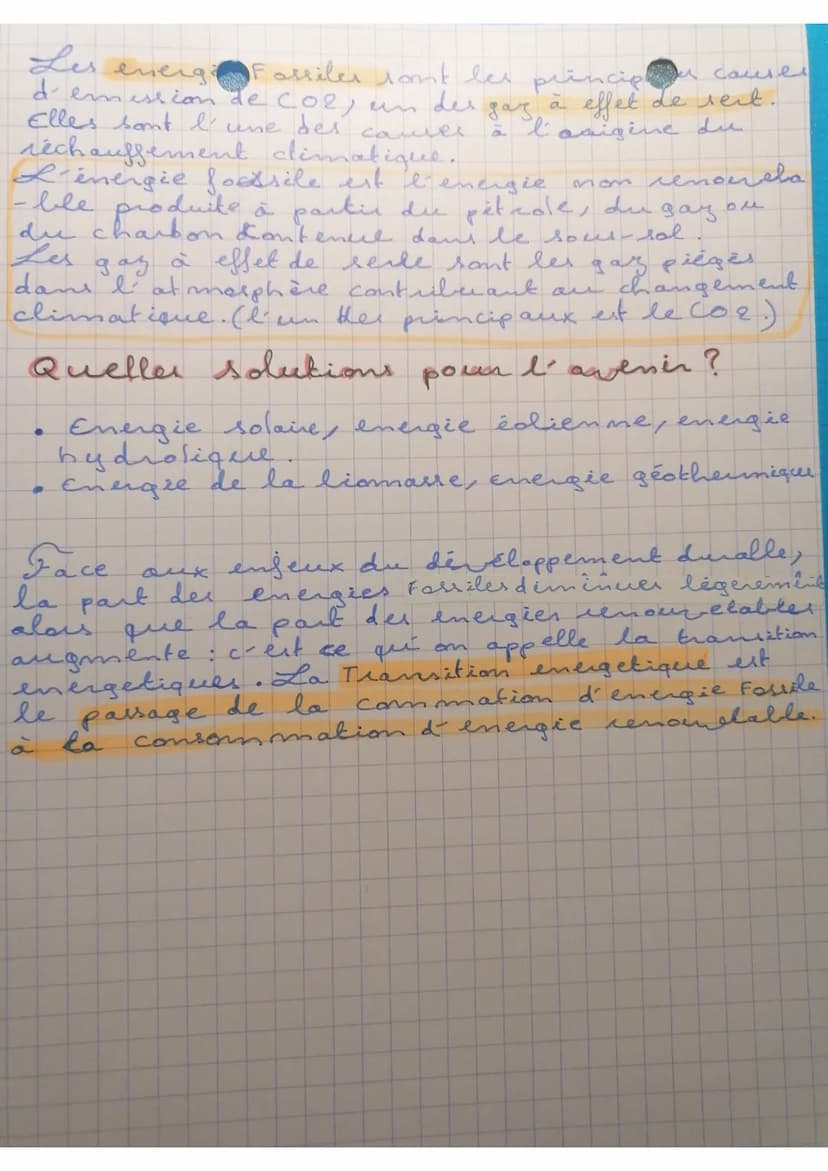 Les energi Fossiles sont les princip es causes
d'emission de CO2, un des gaz à effet de sert.
Elles sont l'une des causes à l'origine du
réchauffement climatique.
L'énergie fossile est l'energie non renouvela
-ble produite à partir du pétrole, du gaz ou
du charbon contenue dans le sous-sol.
Les gaz à effet de serre sont les gaz piégés
dans l'atmosphère contribuant au changement
climatique. (l'un des principaux est le CO2.)
Quelles solutions pour l'avenir ?
• Energie solaire, energie éolienne, energie
hydrolique.
• Energie de la biomasse, energie géothermique
Face aux enjeux du développement durable,
la part des energies Fossiles diminues légerement
alors que la part des energies renouvelables
augmente : c'est ce qu'on appelle la transition
energetiques. La Transition energetique est
le passage de la commation d'energie Fossile
à la consommation d'energie renouvelable.